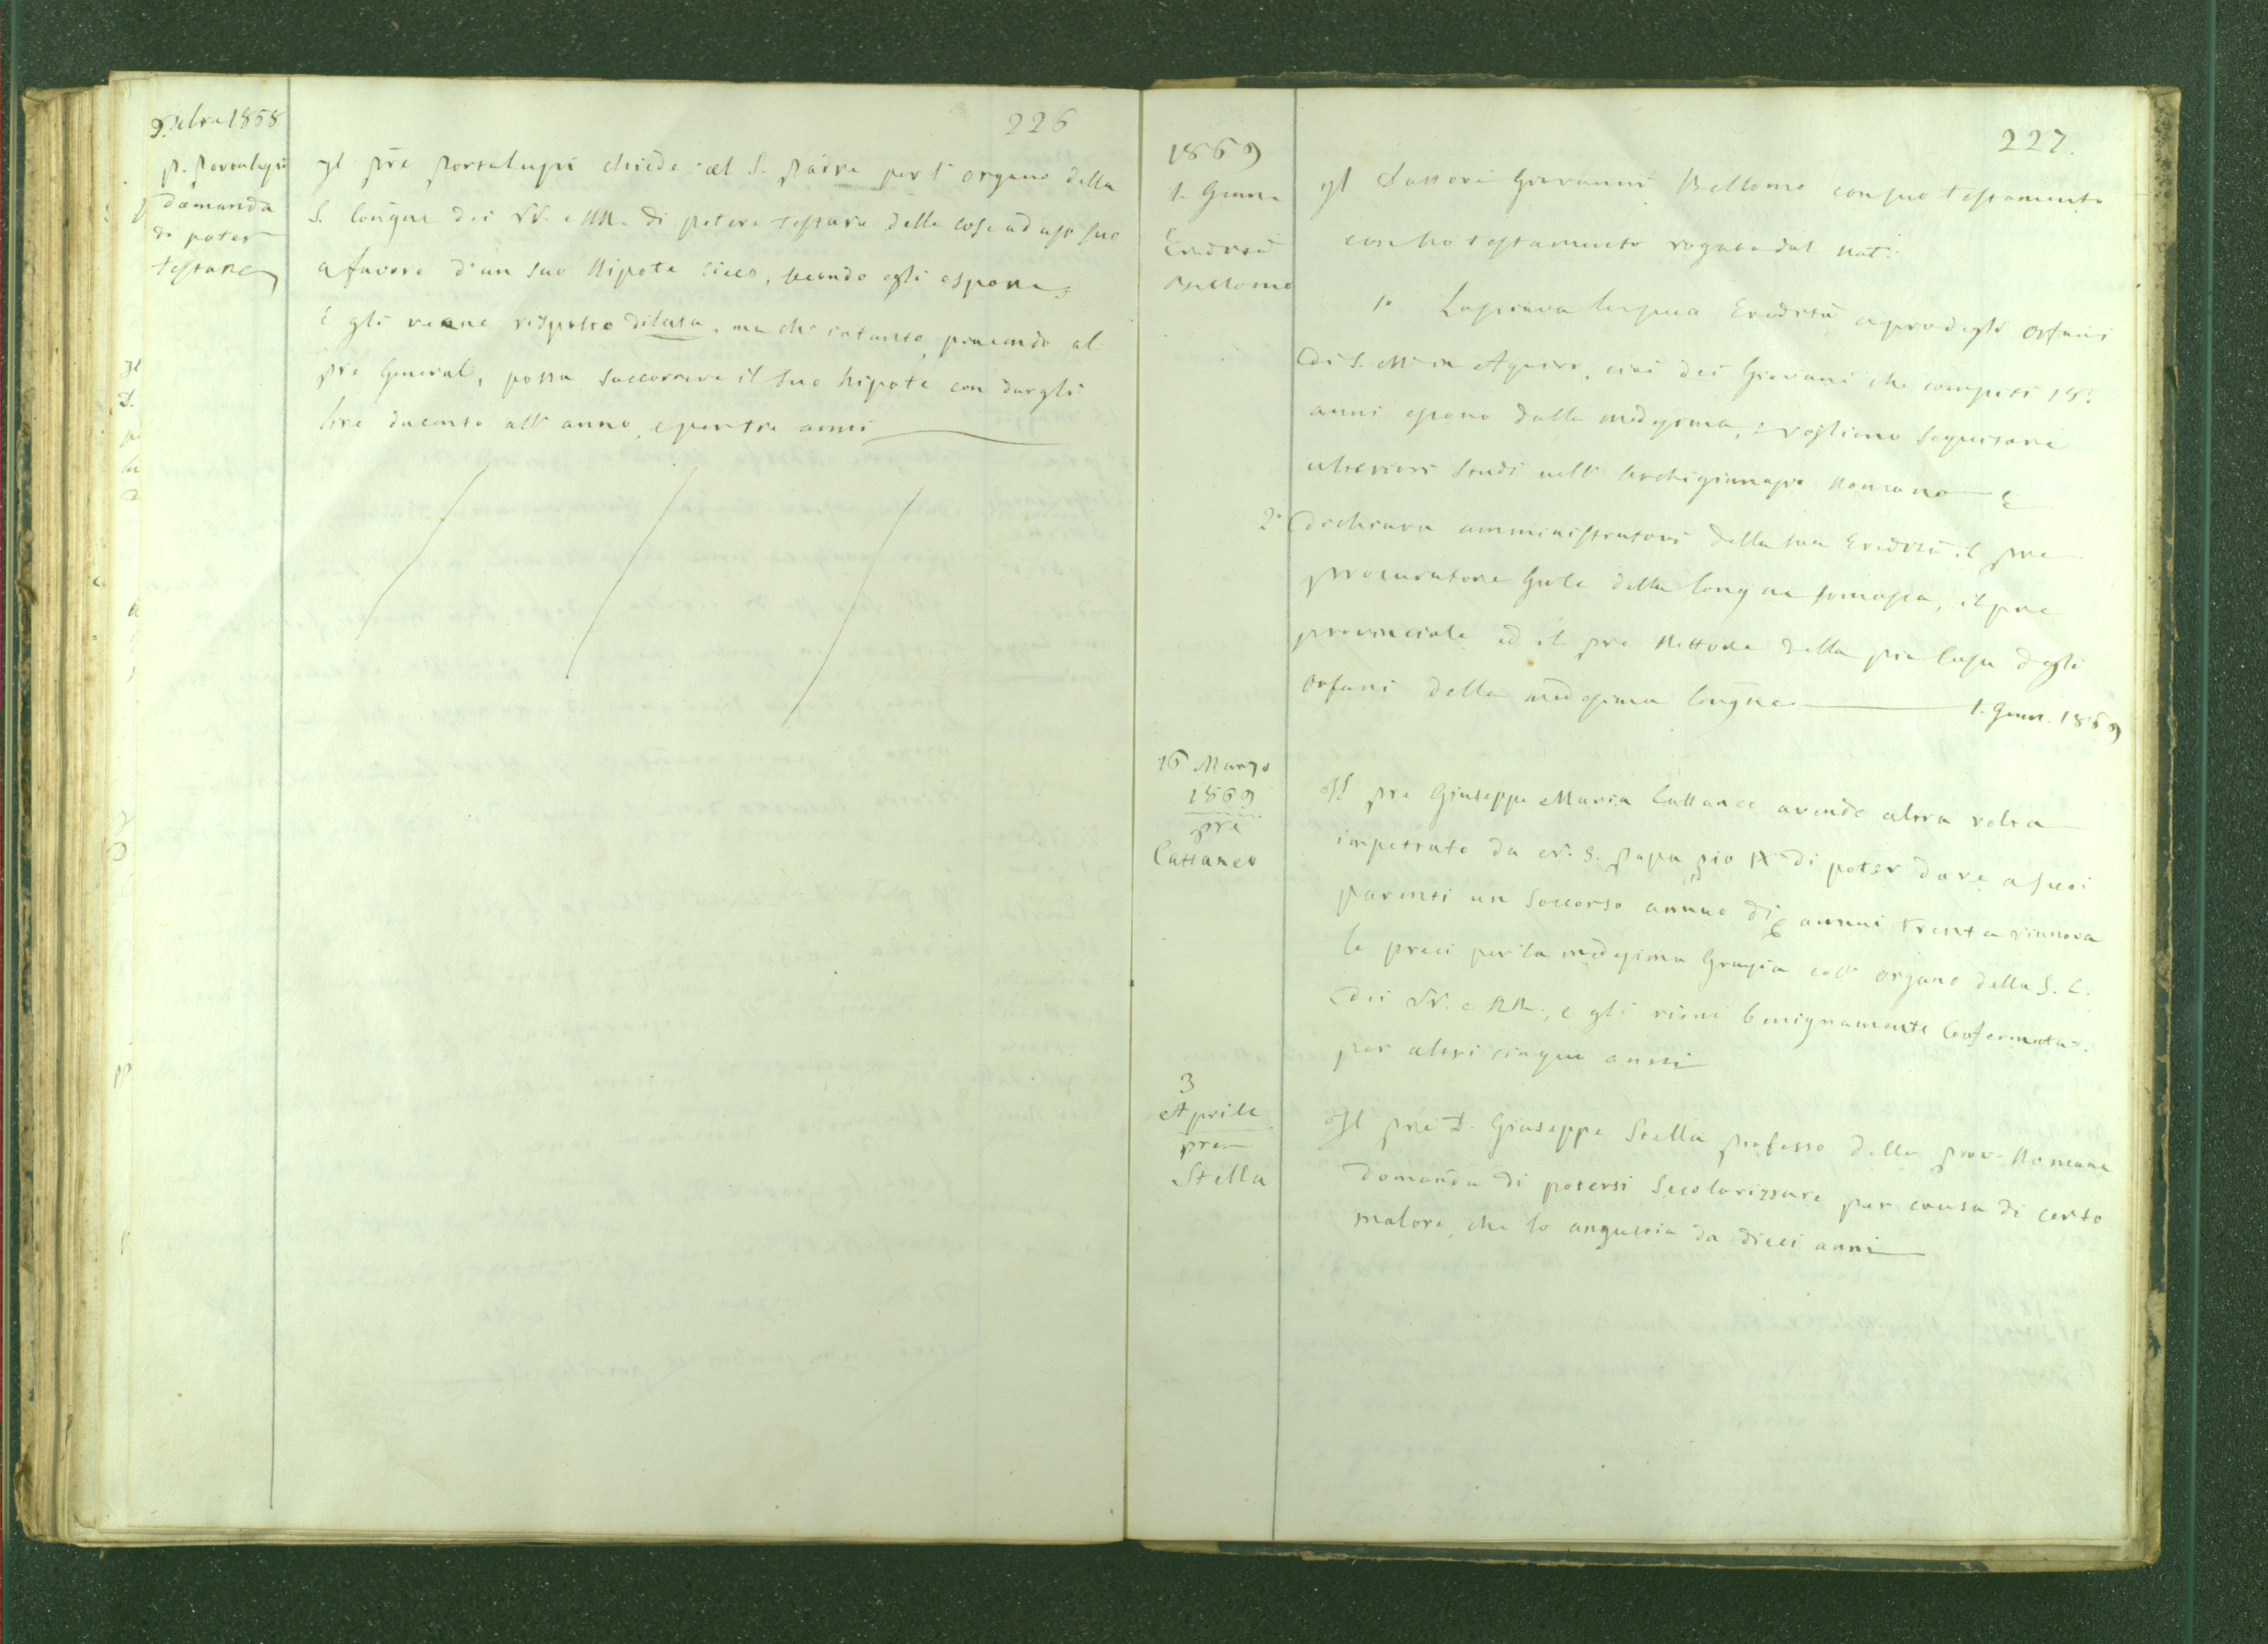 226
9. Xbre 1868
p. Portalupi
domanda
di poter
testare
Il pre Portalupi chiede al S. Padre per l'organo della
S. Congne dei VV. e RR. di potere testare delle cose ad uso suo
a favore d'un suo Nipote cieco, secondo egli espone;
E gli venne risposto dilata, ma che intanto, piacendo al
pre General, possa soccorrere il suo Nipote con dargli
lire ducento all'anno, e per tre anni
227.
1869
1. Genn.
Eredità
Bellomo
Il Dottore Giovanni Bellomo con suo testamento
con suo testamento rogato dal Not.
1° Lasciava la sua Eredità a pro degli Orfani
di S. Ma in Aquiro, cioè dei Giovani che compiti 18.
anni escono dalla medesima, e vogliono seguitare
ulteriori studi nell'Archiginnasio Romano E
2° dichiara amministratori della sua Eredità il pre
procuratore Gnle della Congne somasca, il pre
provinciale ed il pre Rettore della pia Casa degli
Orfani della medesima Congne 1. Genn. 1869
16 Marzo
1869
pre
Cattaneo
Il pre Giuseppe Maria Cattaneo avendo altra volta
impetrato da N. S. Papa Pio IX di poter dare a suoi
parenti un soccorso annuo di annui trenta rinnova
le preci per la medesima Grazia coll'organo della S. C.
dei VV. e RR., e gli viene benignamente Confermata
per altri cinque anni
3
Aprile
pre
Stella
Il pre D. Giuseppe Stella professo della prov. Romana
domanda di potersi secolarizzare per causa di certo
malore, che lo angustia da dieci anni